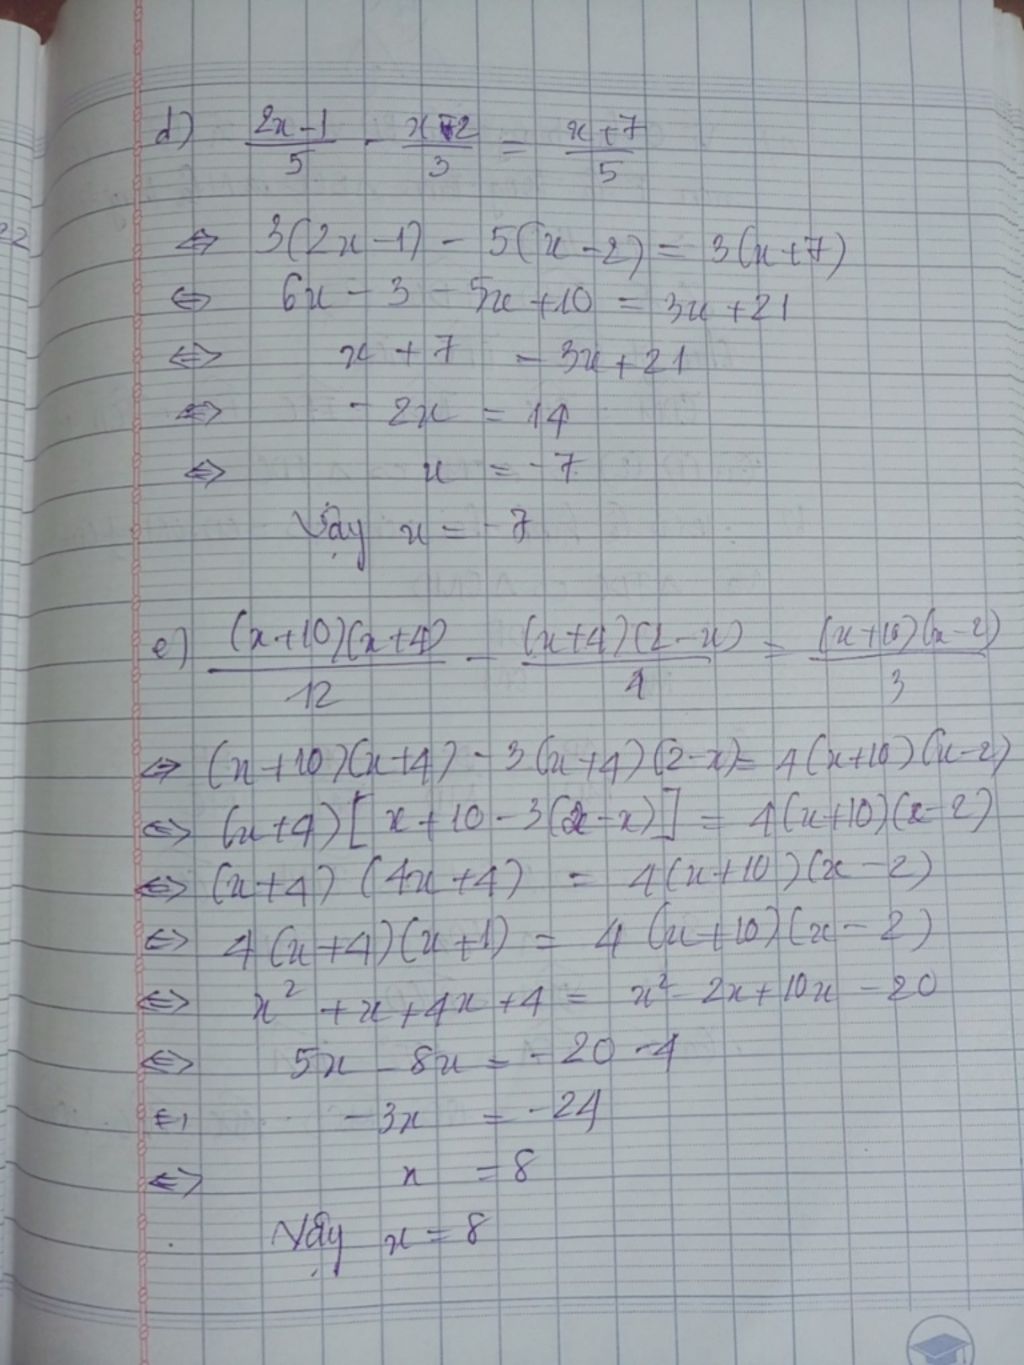 d) (2x-1)/5 - (x-2)/3 = (x+7)/5
22
⇔ 3(2x-1) - 5(x-2) = 3(x+7)
⇔ 6x - 3 - 5x + 10 = 3x + 21
⇔ x + 7 = 3x + 21
⇔ -2x = 14
⇔ x = -7
Vậy x = -7
e) (x+10)(x+4)/12 - (x+4)(2-x)/4 = (x+10)(x-2)/3
⇔ (x+10)(x+4) - 3(x+4)(2-x) = 4(x+10)(x-2)
⇔ (x+4)[x+10-3(2-x)] = 4(x+10)(x-2)
⇔ (x+4)(4x+4) = 4(x+10)(x-2)
⇔ 4(x+4)(x+1) = 4(x+10)(x-2)
⇔ x² + x + 4x + 4 = x² - 2x + 10x - 20
⇔ 5x - 8x = -20 - 4
⇔ -3x = -24
⇔ x = 8
Vậy x = 8